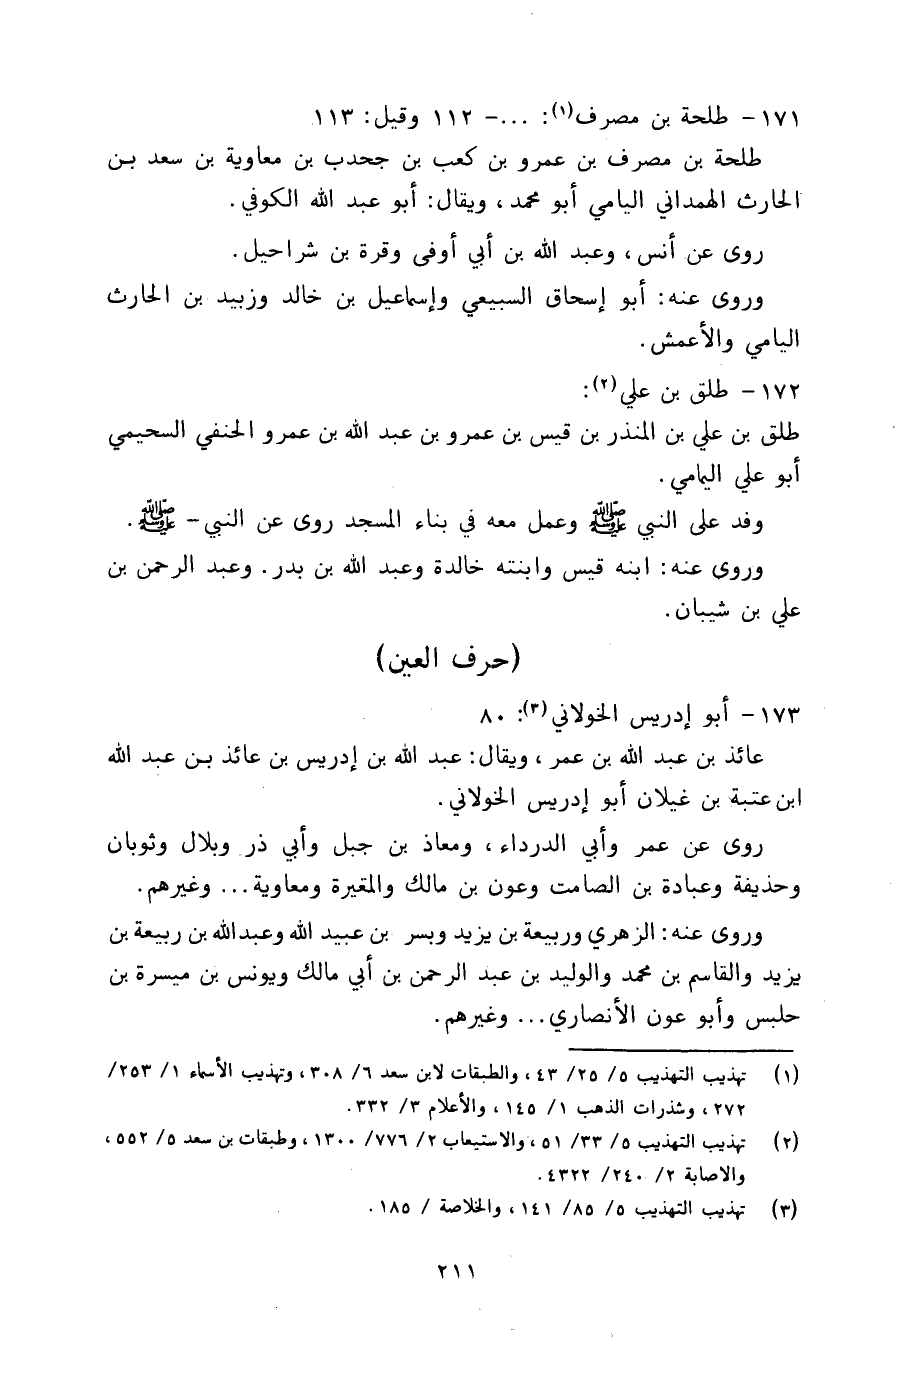 ١٧١ - طلحة بن مصرف(١): ...- ١١٢ وقيل: ١١٣
طلحة بن مصرف بن عمرو بن كعب بن جحدب بن معاوية بن سعد بن
الحارث الهمداني اليامي أبو محمد، ويقال: أبو عبد الله الكوفي.
روى عن أنس، وعبد الله بن أبي أوفى وقرة بن شراحيل.
وروى عنه: أبو إسحاق السبيعي وإسماعيل بن خالد وزبيد بن الحارث
اليامي والأعمش.
١٧٢ - طلق بن علي(٢):
طلق بن علي بن المنذر بن قيس بن عمرو بن عبد الله بن عمرو الحنفي السحيمي
أبو علي اليمامي.
وفد على النبي ﷺ وعمل معه في بناء المسجد روى عن النبي - ﷺ.
وروى عنه: ابنه قيس وابنته خالدة وعبد الله بن بدر. وعبد الرحمن بن
علي بن شيبان.
(حرف العين)
١٧٣ - أبو إدريس الخولاني(٣): ٨٠
عائذ بن عبد الله بن عمر، ويقال: عبد الله بن إدريس بن عائذ بن عبد الله
ابن عتبة بن غيلان أبو إدريس الخولاني.
روى عن عمر وأبي الدرداء، ومعاذ بن جبل وأبي ذر وبلال وثوبان
وحذيفة وعبادة بن الصامت وعون بن مالك والمغيرة ومعاوية... وغيرهم.
وروى عنه: الزهري وربيعة بن يزيد وبسر بن عبيد الله وعبدالله بن ربيعة بن
يزيد والقاسم بن محمد والوليد بن عبد الرحمن بن أبي مالك ويونس بن ميسرة بن
حلبس وأبو عون الأنصاري... وغيرهم.
(١) تهذيب التهذيب ٥/ ٢٥/ ٤٣، والطبقات لابن سعد ٦/ ٣٠٨، وتهذيب الأسماء ١/ ٢٥٣/
٢٧٢، وشذرات الذهب ١/ ١٤٥، والأعلام ٣/ ٣٣٢.
(٢) تهذيب التهذيب ٥/ ٣٣/ ٥١، والاستيعاب ٢/ ٧٧٦/ ١٣٠٠، وطبقات بن سعد ٥/ ٥٥٢،
والاصابة ٢/ ٢٤٠/ ٤٣٢٢.
(٣) تهذيب التهذيب ٥/ ٨٥/ ١٤١، والخلاصة / ١٨٥.
٢١١